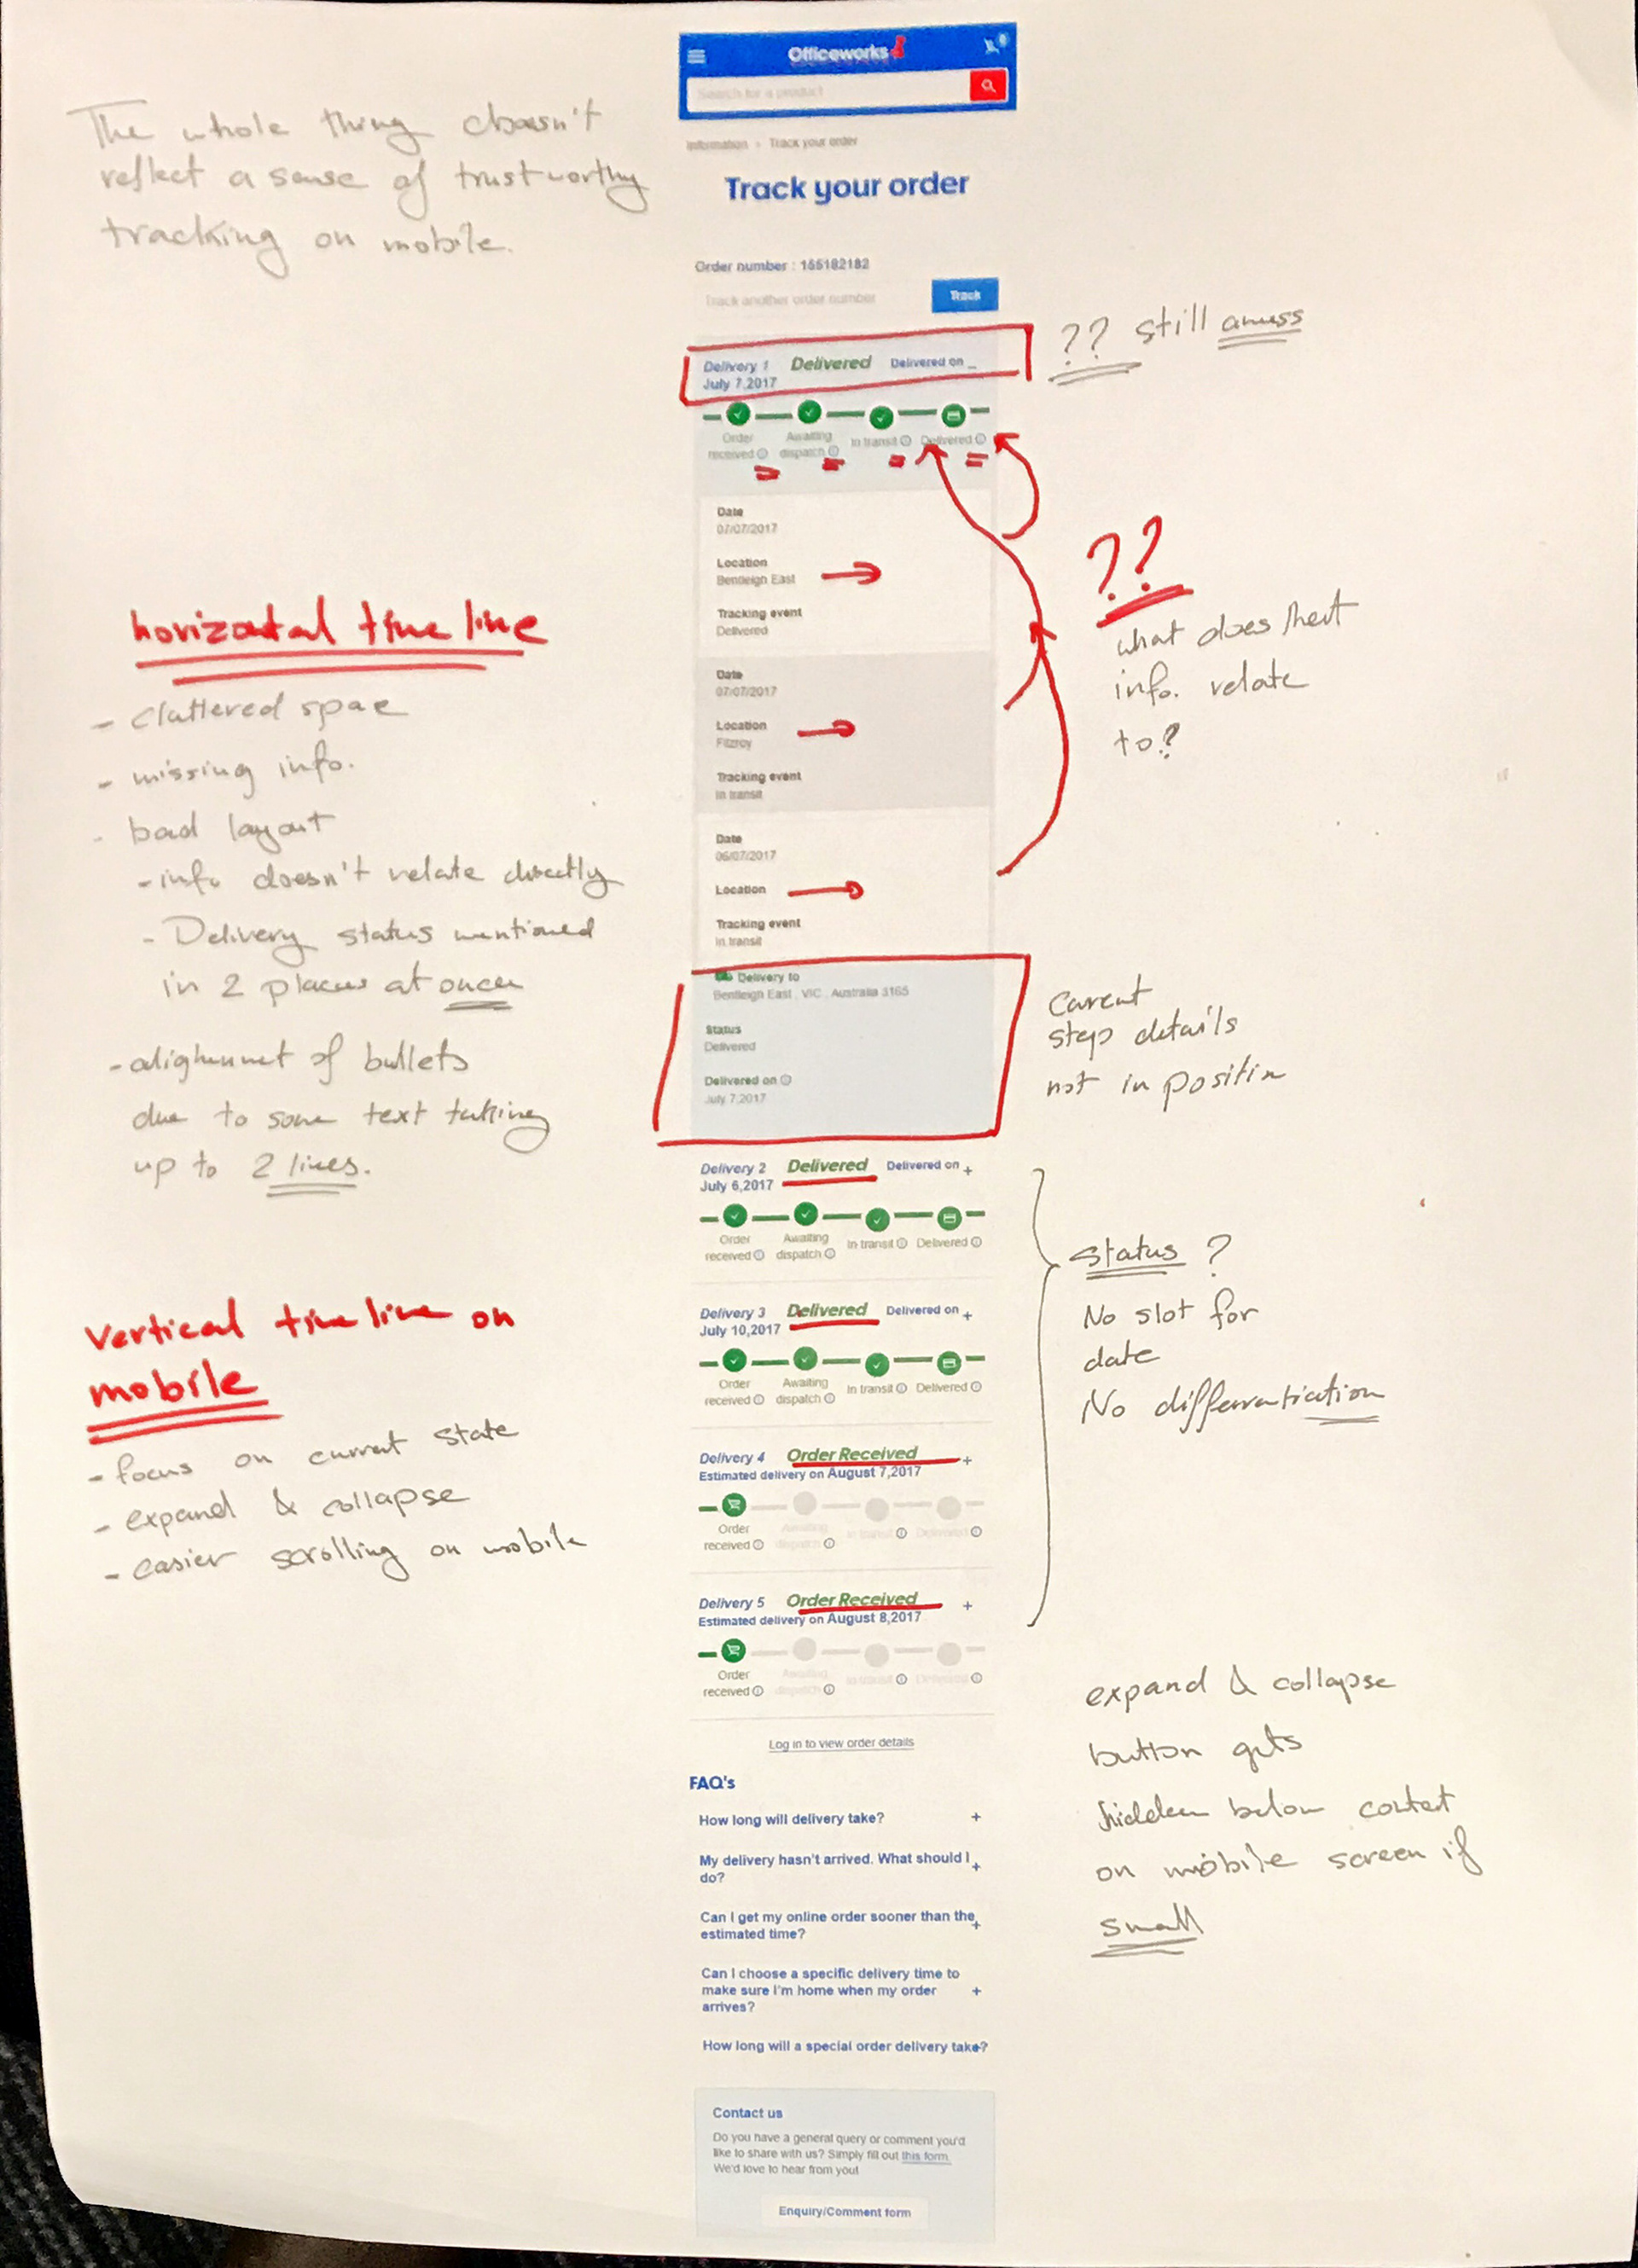 The whole thing doesn't
reflect a sense of trustworthy
tracking on mobile.
horizontal time line
- cluttered space
- missing info.
- bad layout
- info doesn't relate directly
- Delivery status mentioned
in 2 places at once
- alignment of bullets
due to some text taking
up to 2 lines.
vertical time line on
mobile
- focus on current state
- expand & collapse
- easier scrolling on mobile
Officeworks
Search for a product
Information > Track your order
Track your order
Order number : 155182182
Track another order number
Track
Delivery 1 Delivered Delivered on _
July 7,2017
Order received
Awaiting dispatch
In transit
Delivered
Date
07/07/2017
Location
Bentleigh East
Tracking event
Delivered
Date
07/07/2017
Location
Fitzroy
Tracking event
In transit
Date
06/07/2017
Location
Tracking event
In transit
Delivery to
Bentleigh East , VIC , Australia 3165
Status
Delivered
Delivered on
July 7,2017
Delivery 2 Delivered Delivered on +
July 6,2017
Order received
Awaiting dispatch
In transit
Delivered
Delivery 3 Delivered Delivered on +
July 10,2017
Order received
Awaiting dispatch
In transit
Delivered
Delivery 4 Order Received +
Estimated delivery on August 7,2017
Order received
Awaiting dispatch
In transit
Delivered
Delivery 5 Order Received +
Estimated delivery on August 8,2017
Order received
Awaiting dispatch
In transit
Delivered
Log in to view order details
FAQ's
How long will delivery take? +
My delivery hasn't arrived. What should I +
do?
Can I get my online order sooner than the +
estimated time?
Can I choose a specific delivery time to
make sure I'm home when my order +
arrives?
How long will a special order delivery take?
Contact us
Do you have a general query or comment you'd
like to share with us? Simply fill out this form.
We'd love to hear from you!
Enquiry/Comment form
?? still
??
what does
info. relate
to?
step details
not in
Status ?
No slot for
date
No differentiation
expand & collapse
button gets
hidden below
on mobile screen if
small